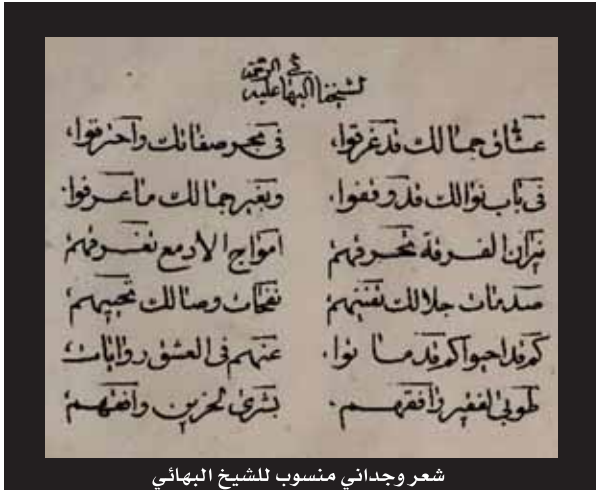 لشيخنا البهاء عليه الرحمة
عشاق جمالك قد غرقوا، في بحر صفاتك واحترقوا،
في باب نوالك قد وقفوا، وبغير جمالك ما عرفوا.
نيران الفرقة تحرقهم امواج الادمع تغرقهم
صدمات جلالك تفنيهم نفحات وصالك تحييهم
كم قد احيوا كم قد ماتوا. عنهم في العشق روايات
طوبى لفقير رافقهم. بشرى لحزين وافقهم
شعر وجداني منسوب للشيخ البهائي